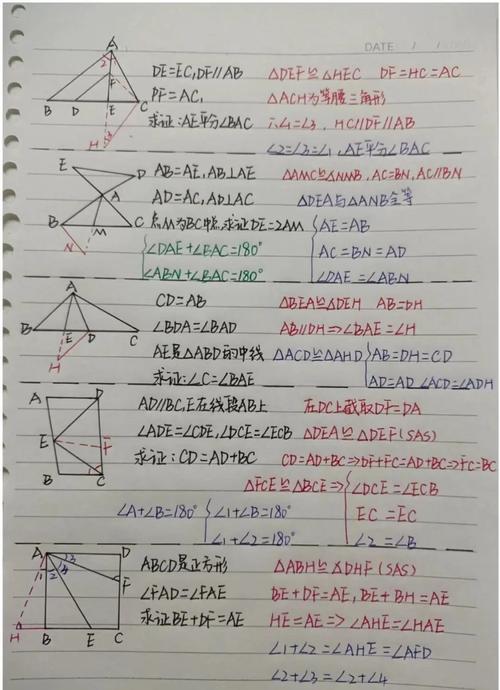 DATE / /
A
2
F
B D E C
H
DE=EC,DF//AB △DEF≌△HEC DF=HC=AC
DF=AC, △ACH为等腰三角形
求证:AE平分∠BAC ∴∠1=∠3, HC//DF//AB
∠2=∠3=∠1,AE平分∠BAC
E
D
A
B M C
N
AB=AE,AB⊥AE △AMC≌△NMB,AC=BN,AC//BN
AD=AC,AD⊥AC △DEA与△ANB全等
点M为BC中点,求证DE=2AM AE=AB
∠DAE+∠BAC=180° AC=BN=AD
∠ABN+∠BAC=180° ∠DAE=∠ABN
A
B E D C
H
CD=AB △BEA≌△DEH AB=DH
∠BDA=∠BAD AB//DH⇒∠BAE=∠H
AE是△ABD的中线 △ACD≌△AHD AB=DH=CD
求证:∠C=∠BAE AD=AD ∠ACD=∠ADH
A D
E F
B C
AD//BC,E在线段AB上 在DC上截取DF=DA
∠ADE=∠CDE,∠DCE=∠ECB △DEA≌△DEF(SAS)
求证:CD=AD+BC CD=AD+BC⇒DF+FC=AD+BC⇒FC=BC
△FCE≌△BCE⇒ ∠DCE=∠ECB
∠A+∠B=180° ∠1+∠B=180° EC=EC
∠1+∠2=180° ∠2=∠B
A D
3
2 4
F
H B E C
ABCD是正方形 △ABH≌△DHF(SAS)
∠FAD=∠FAE BE+DF=AE,BE+BH=AE
求证BE+DF=AE HE=AE⇒∠AHE=∠HAE
∠1+∠2=∠AHE=∠AFD
∠2+∠3=∠2+∠4